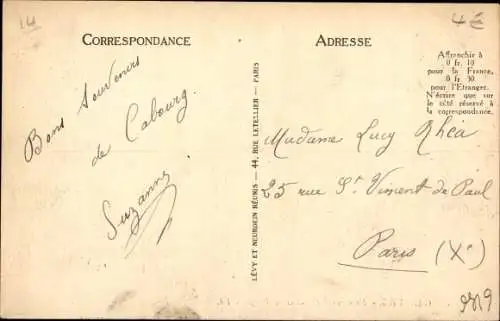 14
4€
CORRESPONDANCE
ADRESSE
Affranchir à
0 fr. 10
pour la France,
0 fr. 30
pour l'Etranger.
N'écrire que sur
le côté réservé à
la correspondance.
Bons Souvenirs
de Cabourg.
Suzanne
LÉVY ET NEURDEIN RÉUNIS - 44, RUE LETELLIER - PARIS
Madame Lucy Rhéa
25 rue St Vincent de Paul
Paris (Xe)